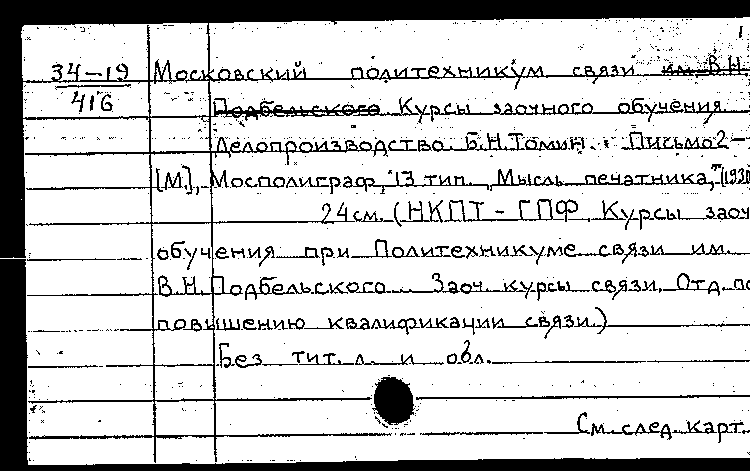 1
34-19 Московский политехникум связи им. В.Н.
416 Подбельского Курсы заочного обучения
Делопроизводство. Б.Н. Томин. Письмо 2-
[М.], Мосполиграф, 13 тип. "Мысль печатника," [1930
24см. (НКПТ - ГПФ. Курсы заоч
обучения при Политехникуме связи им.
В.Н. Подбельского. Заоч. курсы связи. Отд. по
повышению квалификации связи.)
Без тит. л. и обл.
См. след. карт.